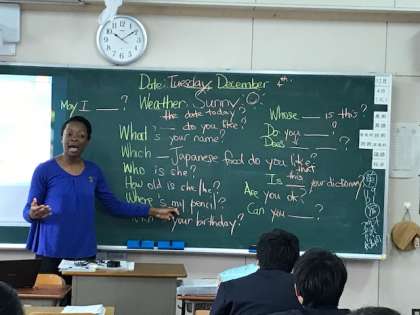 Date: Tuesday December 4th.
Weather: Sunny
May I ___?
the date today?
What ___ do you like?
What's your name?
Which ___ Japanese food do you like?
Who is she?
How old is she/he?
Where's my pencil?
your birthday?
Whose ___ is this?
Do you ___?
Does ___?
that
Is this your dictionary?
Are you ok?
Can you ___?